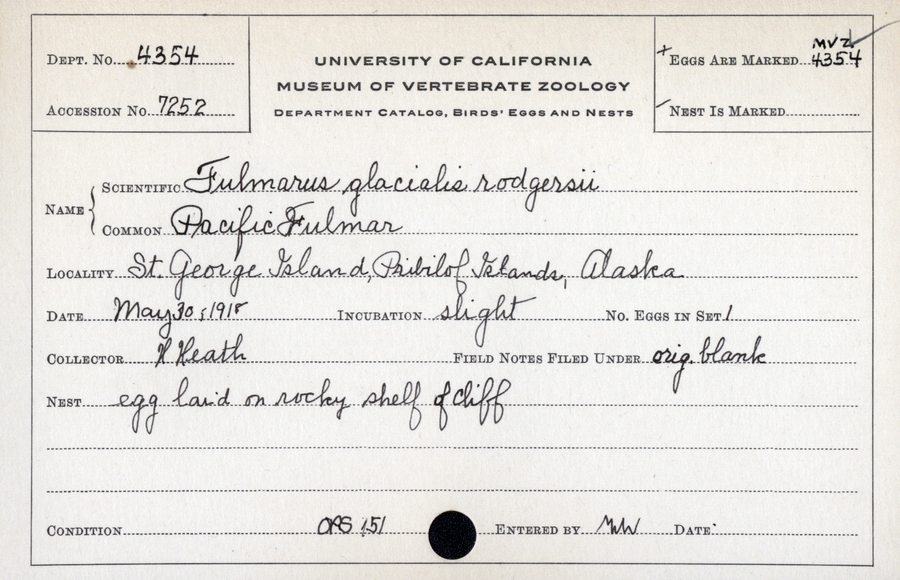 Dept. No. 4354
Accession No. 7252
UNIVERSITY OF CALIFORNIA
MUSEUM OF VERTEBRATE ZOOLOGY
Department Catalog, Birds' Eggs and Nests
+ Eggs Are Marked MVZ 4354
Nest Is Marked
Name
Scientific Fulmarus glacialis rodgersii
Common Pacific Fulmar
Locality St. George Island, Pribilof Islands, Alaska
Date May 30, 1918 Incubation slight No. Eggs in Set 1
Collector H Heath Field Notes Filed Under orig. blank
Nest egg laid on rocky shelf of cliff
Condition Entered by Date